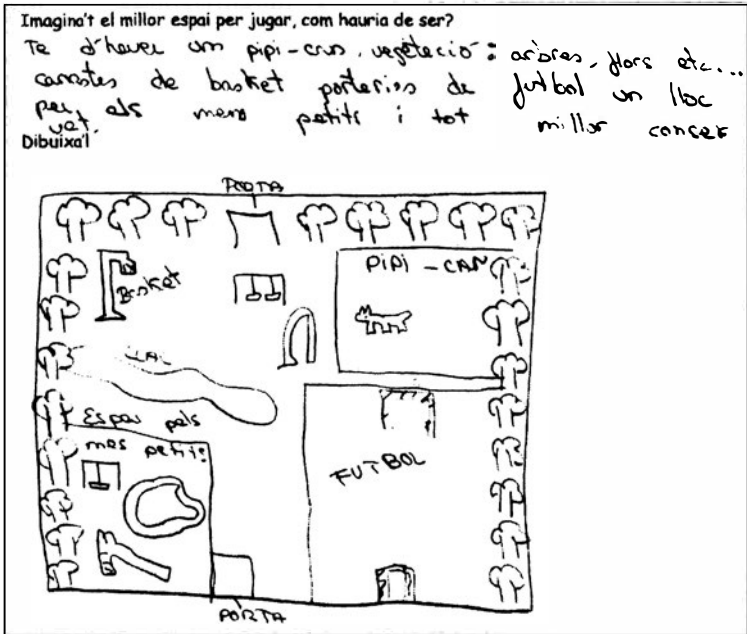 Imagina't el millor espai per jugar, com hauria de ser?
Te d'haver um pipi-can, vegetació: arbres, flors etc...
canastes de basket porterias de futbol un lloc
per els mens petits i tot millor conser
vat.
Dibuixa'l
PORTA
Basket
PiPi-CAN
LAC
Espai pels
mes petits
FUTBOL
PORTA